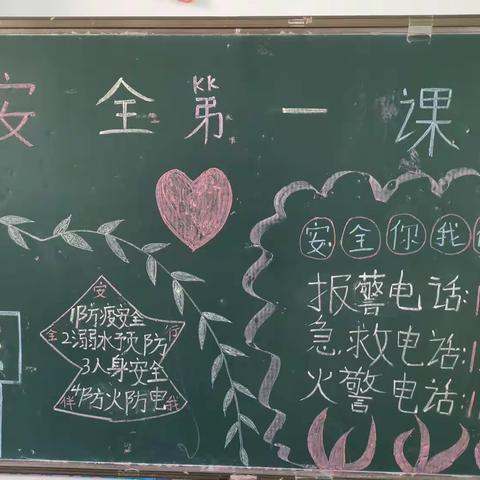 安全第一课
安全你我
报警电话:1
急救电话:1
火警电话:1
安
全 行
伴 我
1防疫安全
2溺水预防
3人身安全
4防火防电